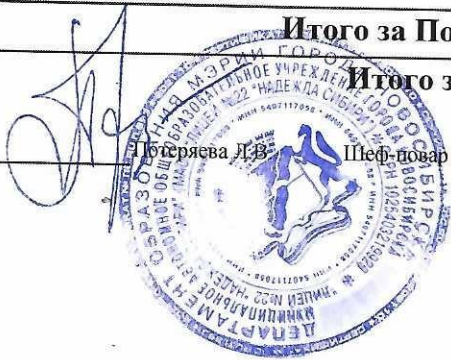 Итого за По
Итого з
Потеряева Л.В. Шеф-повар
ДЕПАРТАМЕНТ ОБРАЗОВАНИЯ МЭРИИ ГОРОДА НОВОСИБИРСКА
МУНИЦИПАЛЬНОЕ АВТОНОМНОЕ ОБЩЕОБРАЗОВАТЕЛЬНОЕ УЧРЕЖДЕНИЕ ГОРОДА НОВОСИБИРСКА
"ЛИЦЕЙ №22 "НАДЕЖДА СИБИРИ"
ИНН 5407117058